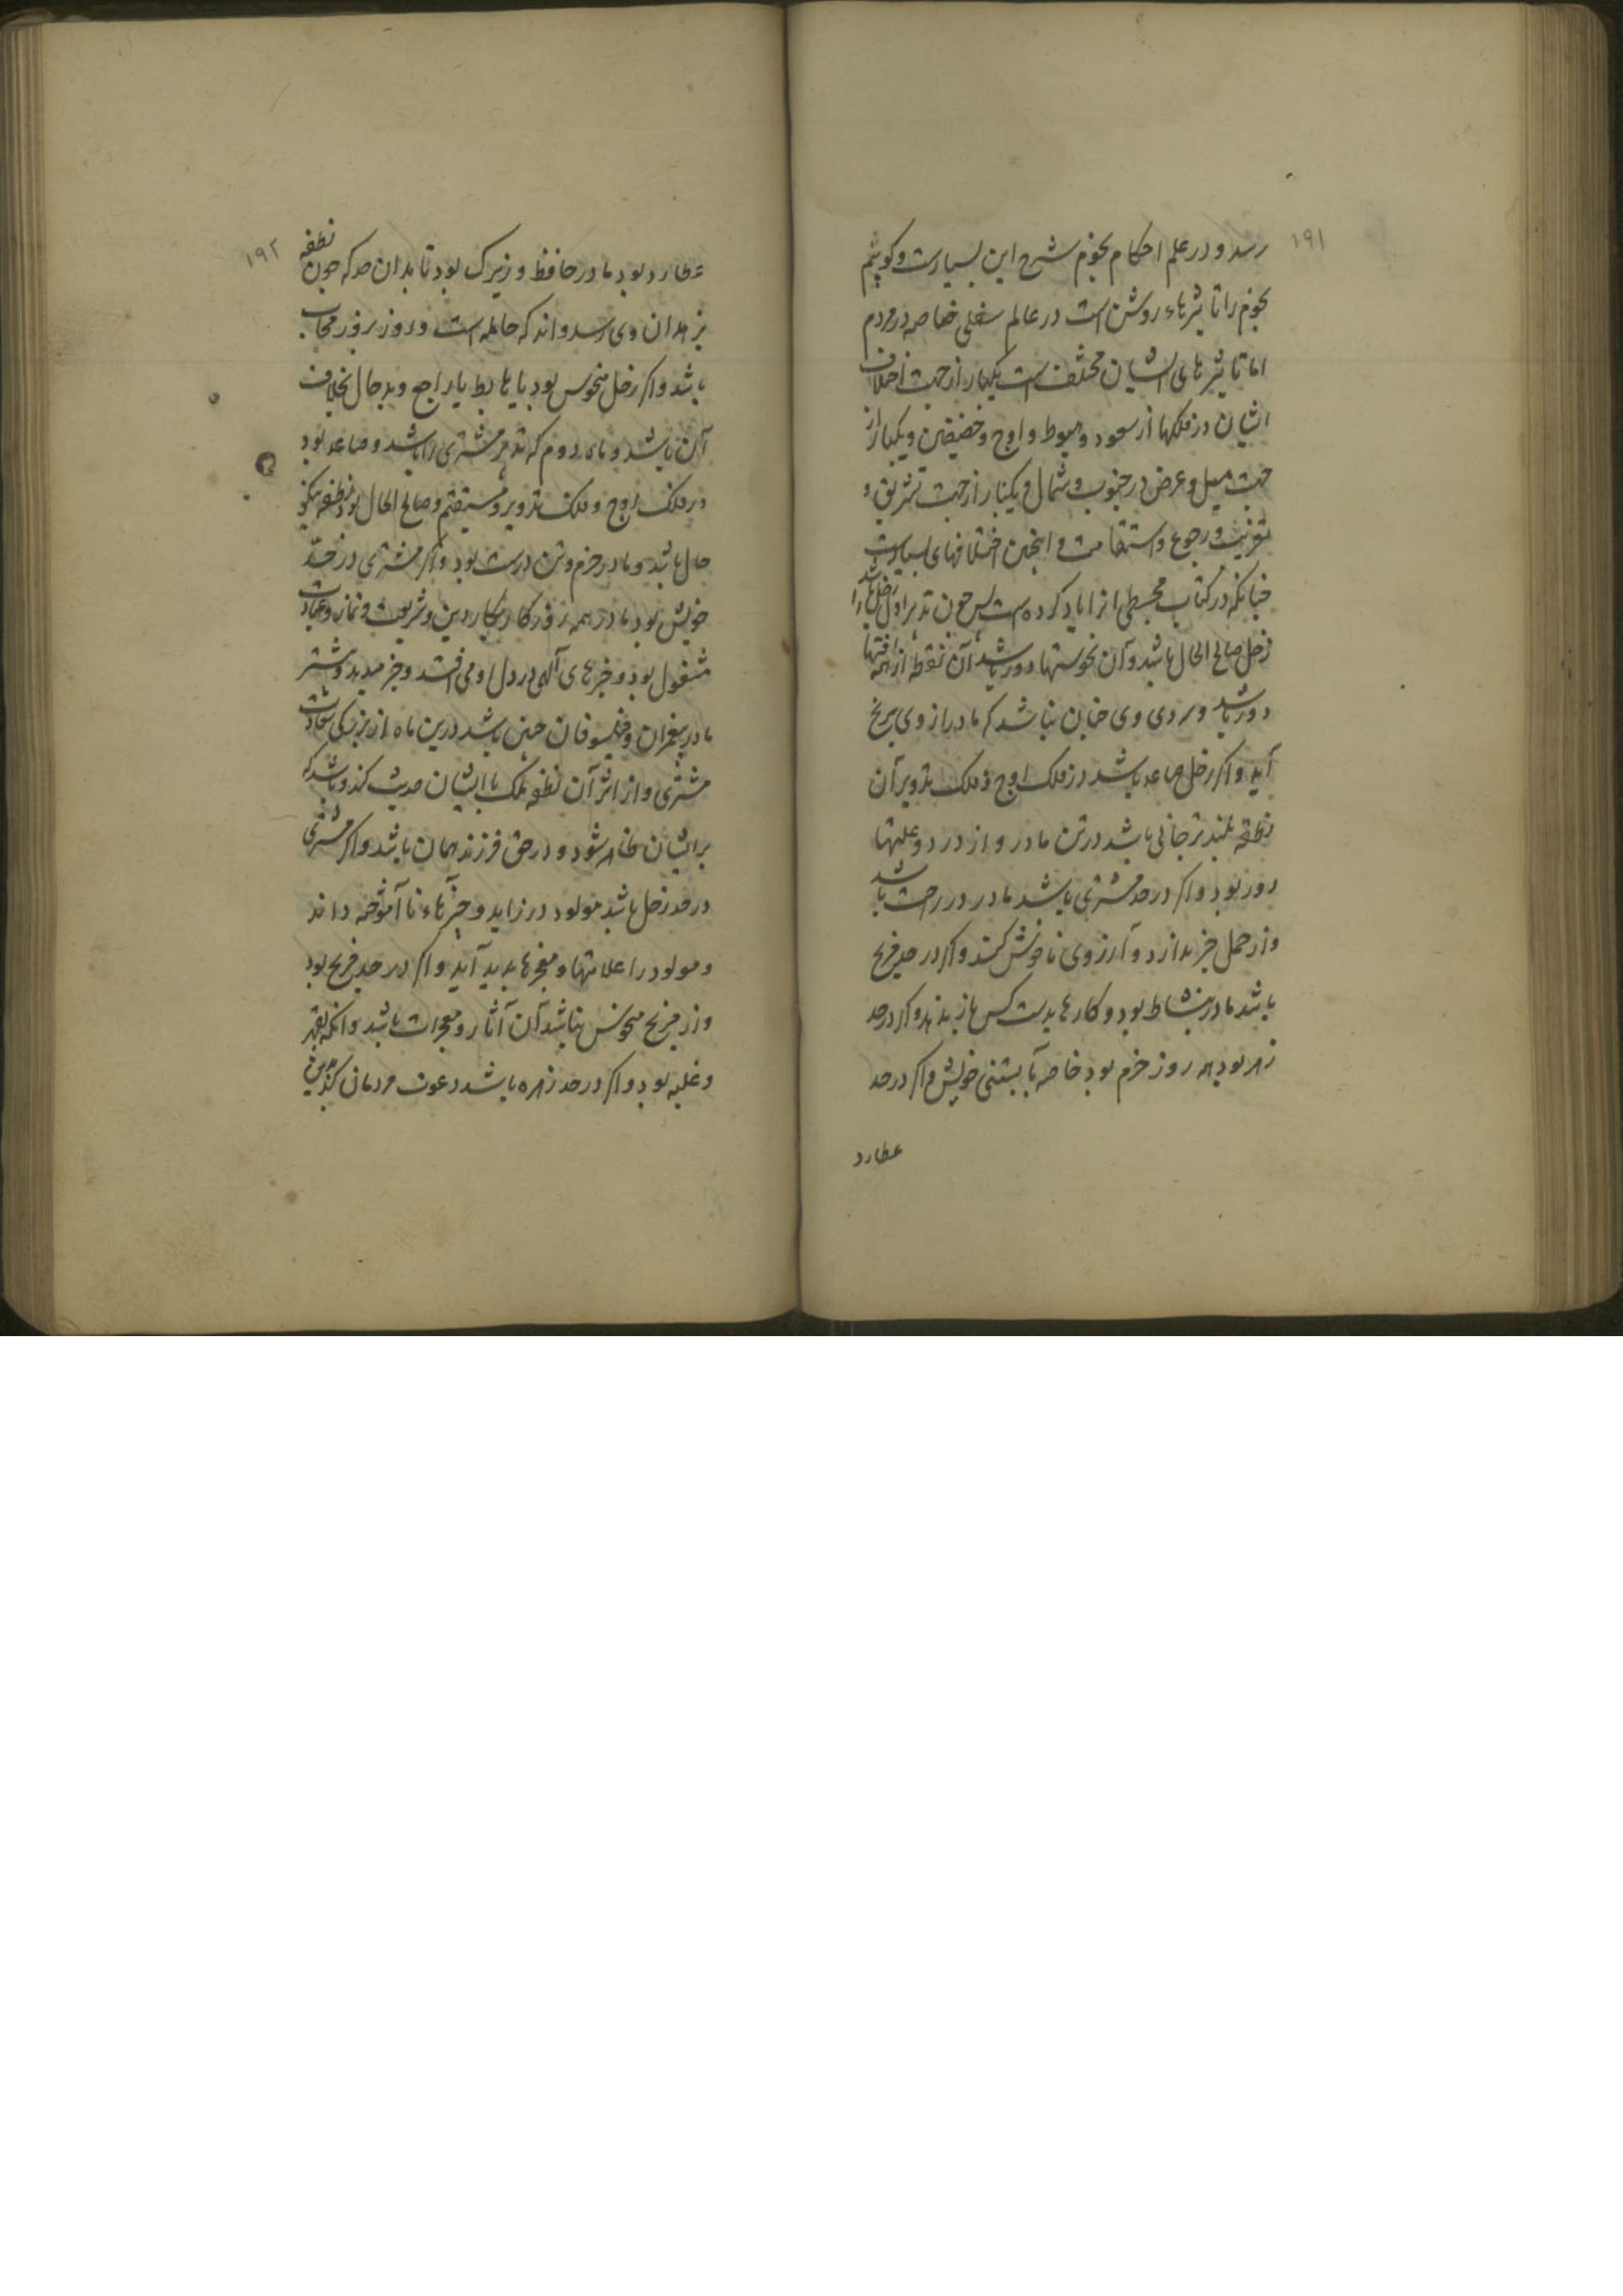 ۱۹۱
رسد و در علم احکام نجوم شرح این بسیارست و کوییم
نجوم را تاثیرهاء روشن است در عالم سفلی خاصه در مردم
اما تاثیرهای ایشان مختلف است یکبار از جهت اختلاف
ایشان در فلکها از صعود و هبوط و اوج و حضیض و یکبار از
جهت میل و عرض در جنوب و شمال و یکبار از جهت تشریق و
تغریب و رجوع و استقامت و اینچنین اختلافهای بسیارست
چنانکه در کتاب مجسطی انرا یاد کرده است پس چون تدبیر اول زحل را باشد
زحل صالح الحال باشد و آن نحوستها دور باشد آن نقطه از همه آفتها
دور باشد و سردی وی چنان نباشد که مادر از وی برنج
آید و اکر زحل صاعد باشد در فلک اوج و فلک تدویر آن
نطفه بلندتر جائی باشد در تن مادر و از درد و علتها
دور بود و اکر در حد مشتری باشد مادر در راحت باشد
و از حمل خبر ندارد و آرزوی ناخوش کند و اکر در حد مریخ
باشد مادر بنشاط بود و کارها بدست کس باز ندهد و اکر در حد
زهره بود هر روز خرم بود خاصه بآبستنی خویش و اکر در حد
عطارد
۱۹۲
عطارد بود مادر حافظ و زیرک بود تا بدان حد که چون نطفه
بزهدان وی رسد داند که حامله است و روز بروز
باشد و اکر زحل منحوس بود یا هابط یا راجع و بدحال بخلاف
آن باشد و ماه دوم که تدبیر مشتری را باشد و صاعد بود
در فلک اوج و فلک تدویر و مستقیم و صالح الحال بود نطفه نیکو
حال باشد و مادر خرم و تن درست بود و اکر مشتری در حد
خویش بود مادر همه روز کار بکار دین و شریعت و نماز و عبادت
مشغول بود و خبرهای آلهی در دل او می افتد و خبر میدهد و بیشتر
مادر پیغمبران و فیلسوفان چنین باشد درین ماه از بزرکی سعادت
مشتری و از اثر آن نطفه ملک با ایشان حدیث کند و باشد که
بر ایشان ظاهر شود و در حق فرزند همان باشد و اکر مشتری
در حد زحل باشد مولود در زاید و چیزهاء ناآموخته داند
و مولود را علامتها و معجزها پدید آید و اکر در حد مریخ بود
و از مریخ منحوس نباشد آن آثار و معجزات باشد و انکه بقهر
و غلبه بود و اکر در حد زهره باشد دعوت مردمان کند